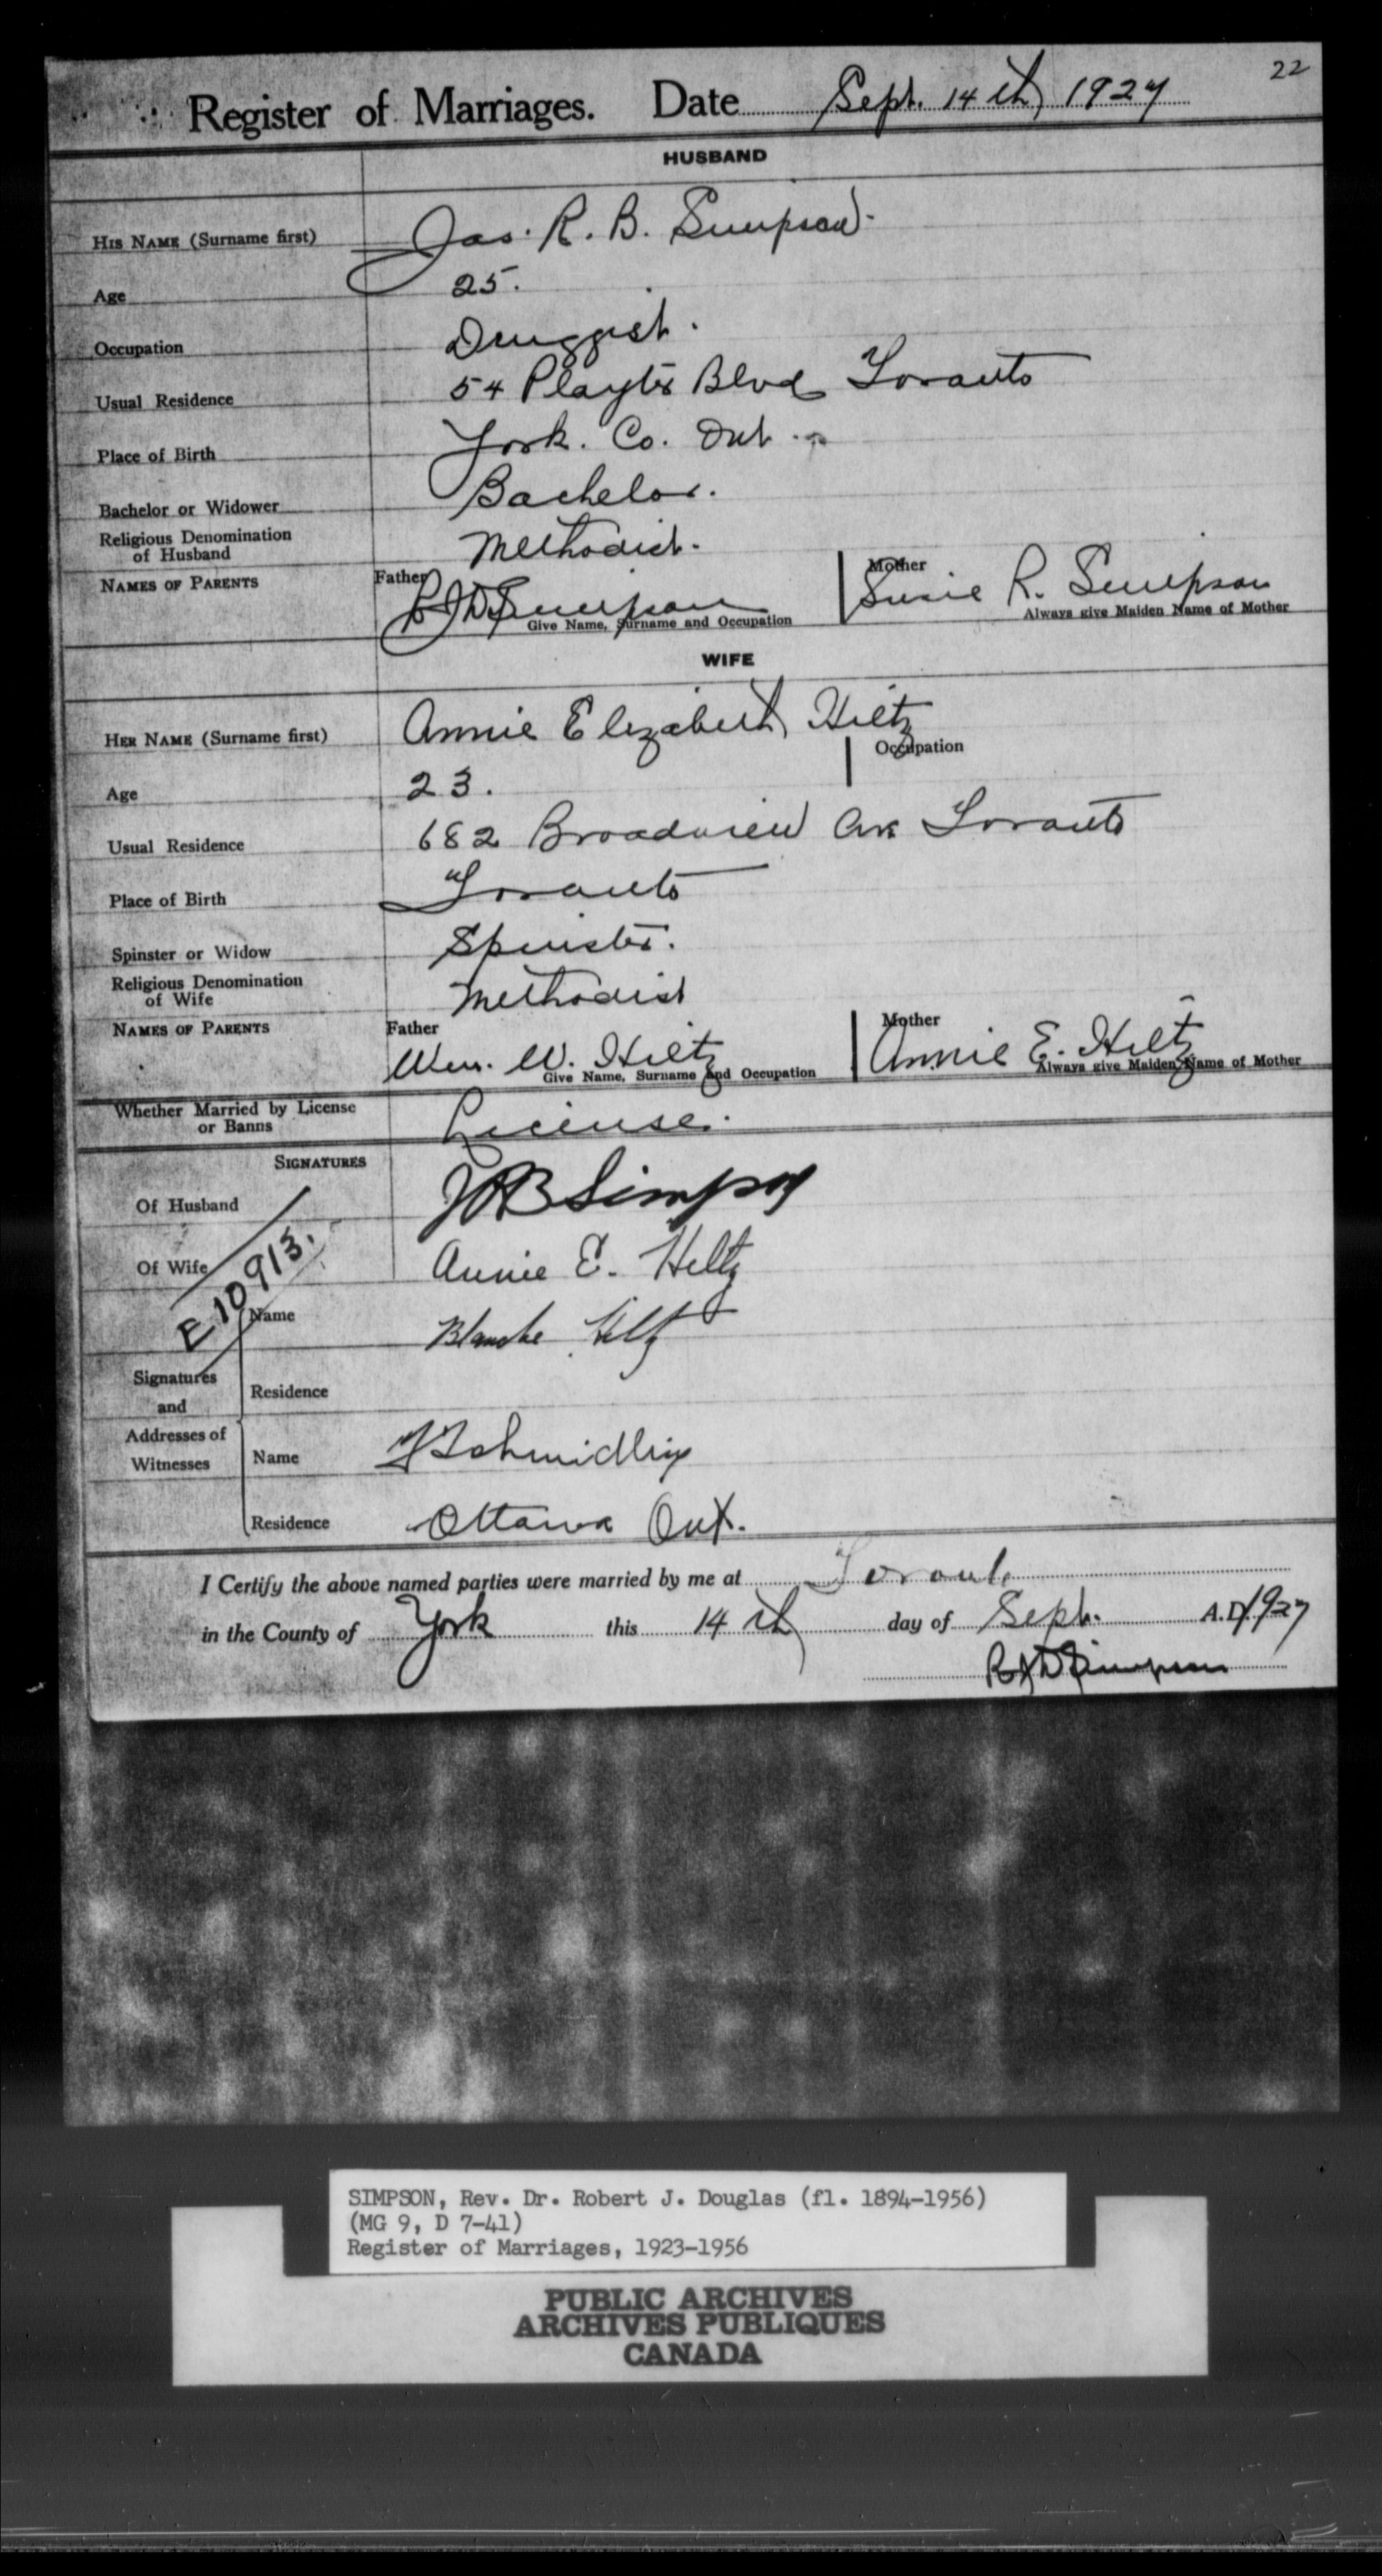 22
Register of Marriages. Date Sept. 14th 1927
HUSBAND
HIS NAME (Surname first) Jas. R. B. Simpson
Age 25.
Occupation Druggist.
Usual Residence 54 Playter Blvd Toronto
Place of Birth York. Co. Ont.
Bachelor or Widower Bachelor.
Religious Denomination of Husband Methodist.
NAMES OF PARENTS Father R J D Simpson Mother Susie R. Simpson
Give Name, Surname and Occupation Always give Maiden Name of Mother
WIFE
HER NAME (Surname first) Annie Elizabeth Hiltz
Occupation
Age 23.
Usual Residence 682 Broadview Ave Toronto
Place of Birth Toronto
Spinster or Widow Spinster.
Religious Denomination of Wife Methodist
NAMES OF PARENTS Father Wm. W. Hiltz Mother Annie E. Hiltz
Give Name, Surname and Occupation Always give Maiden Name of Mother
Whether Married by License or Banns License.
SIGNATURES
Of Husband JRB Simpson
Of Wife Annie E. Hiltz
E 10913.
Name Blanche Hiltz
Signatures and Addresses of Witnesses
Residence
Name Schmidlin
Residence Ottawa Ont.
I Certify the above named parties were married by me at Toronto
in the County of York this 14th day of Sept. A.D. 1927
R J D Simpson
SIMPSON, Rev. Dr. Robert J. Douglas (fl. 1894-1956)
(MG 9, D 7-41)
Register of Marriages, 1923-1956
PUBLIC ARCHIVES
ARCHIVES PUBLIQUES
CANADA